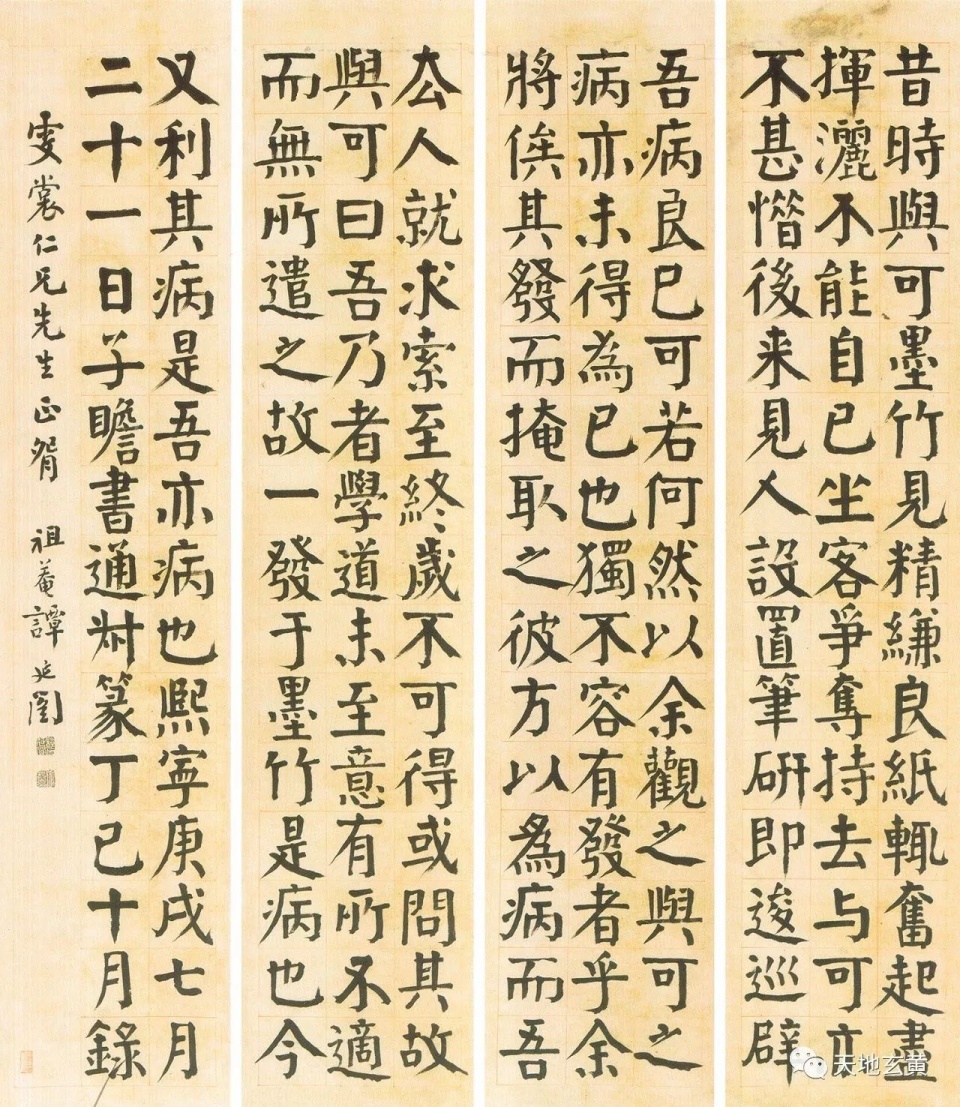 昔時與可墨竹見精縑良紙輒奮起畫
揮灑不能自已坐客爭奪持去与可亦
不甚惜後来見人設置筆研即逡巡辟
吾病良已可若何然以余觀之與可之
病亦未得為已也獨不容有發者乎余
將俟其發而掩取之彼方以為病而吾
厺人就求索至終歲不可得或問其故
與可曰吾乃者學道未至意有所不適
而無所遣之故一發于墨竹是病也今
又利其病是吾亦病也熙寧庚戌七月
二十一日子瞻書通叔篆丁巳十月錄
雯裳仁兄先生正 祖菴譚延闓
天地玄黄